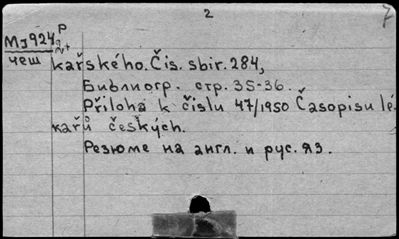 2
7
МJ924 Р
2+
чеш
kařského. Čis. sbir. 284,
Библиогр. стр. 35-36.
Přiloha k čislu 47/1950 Časopisu lé-
kařů českých.
Резюме на англ. и рус. яз.